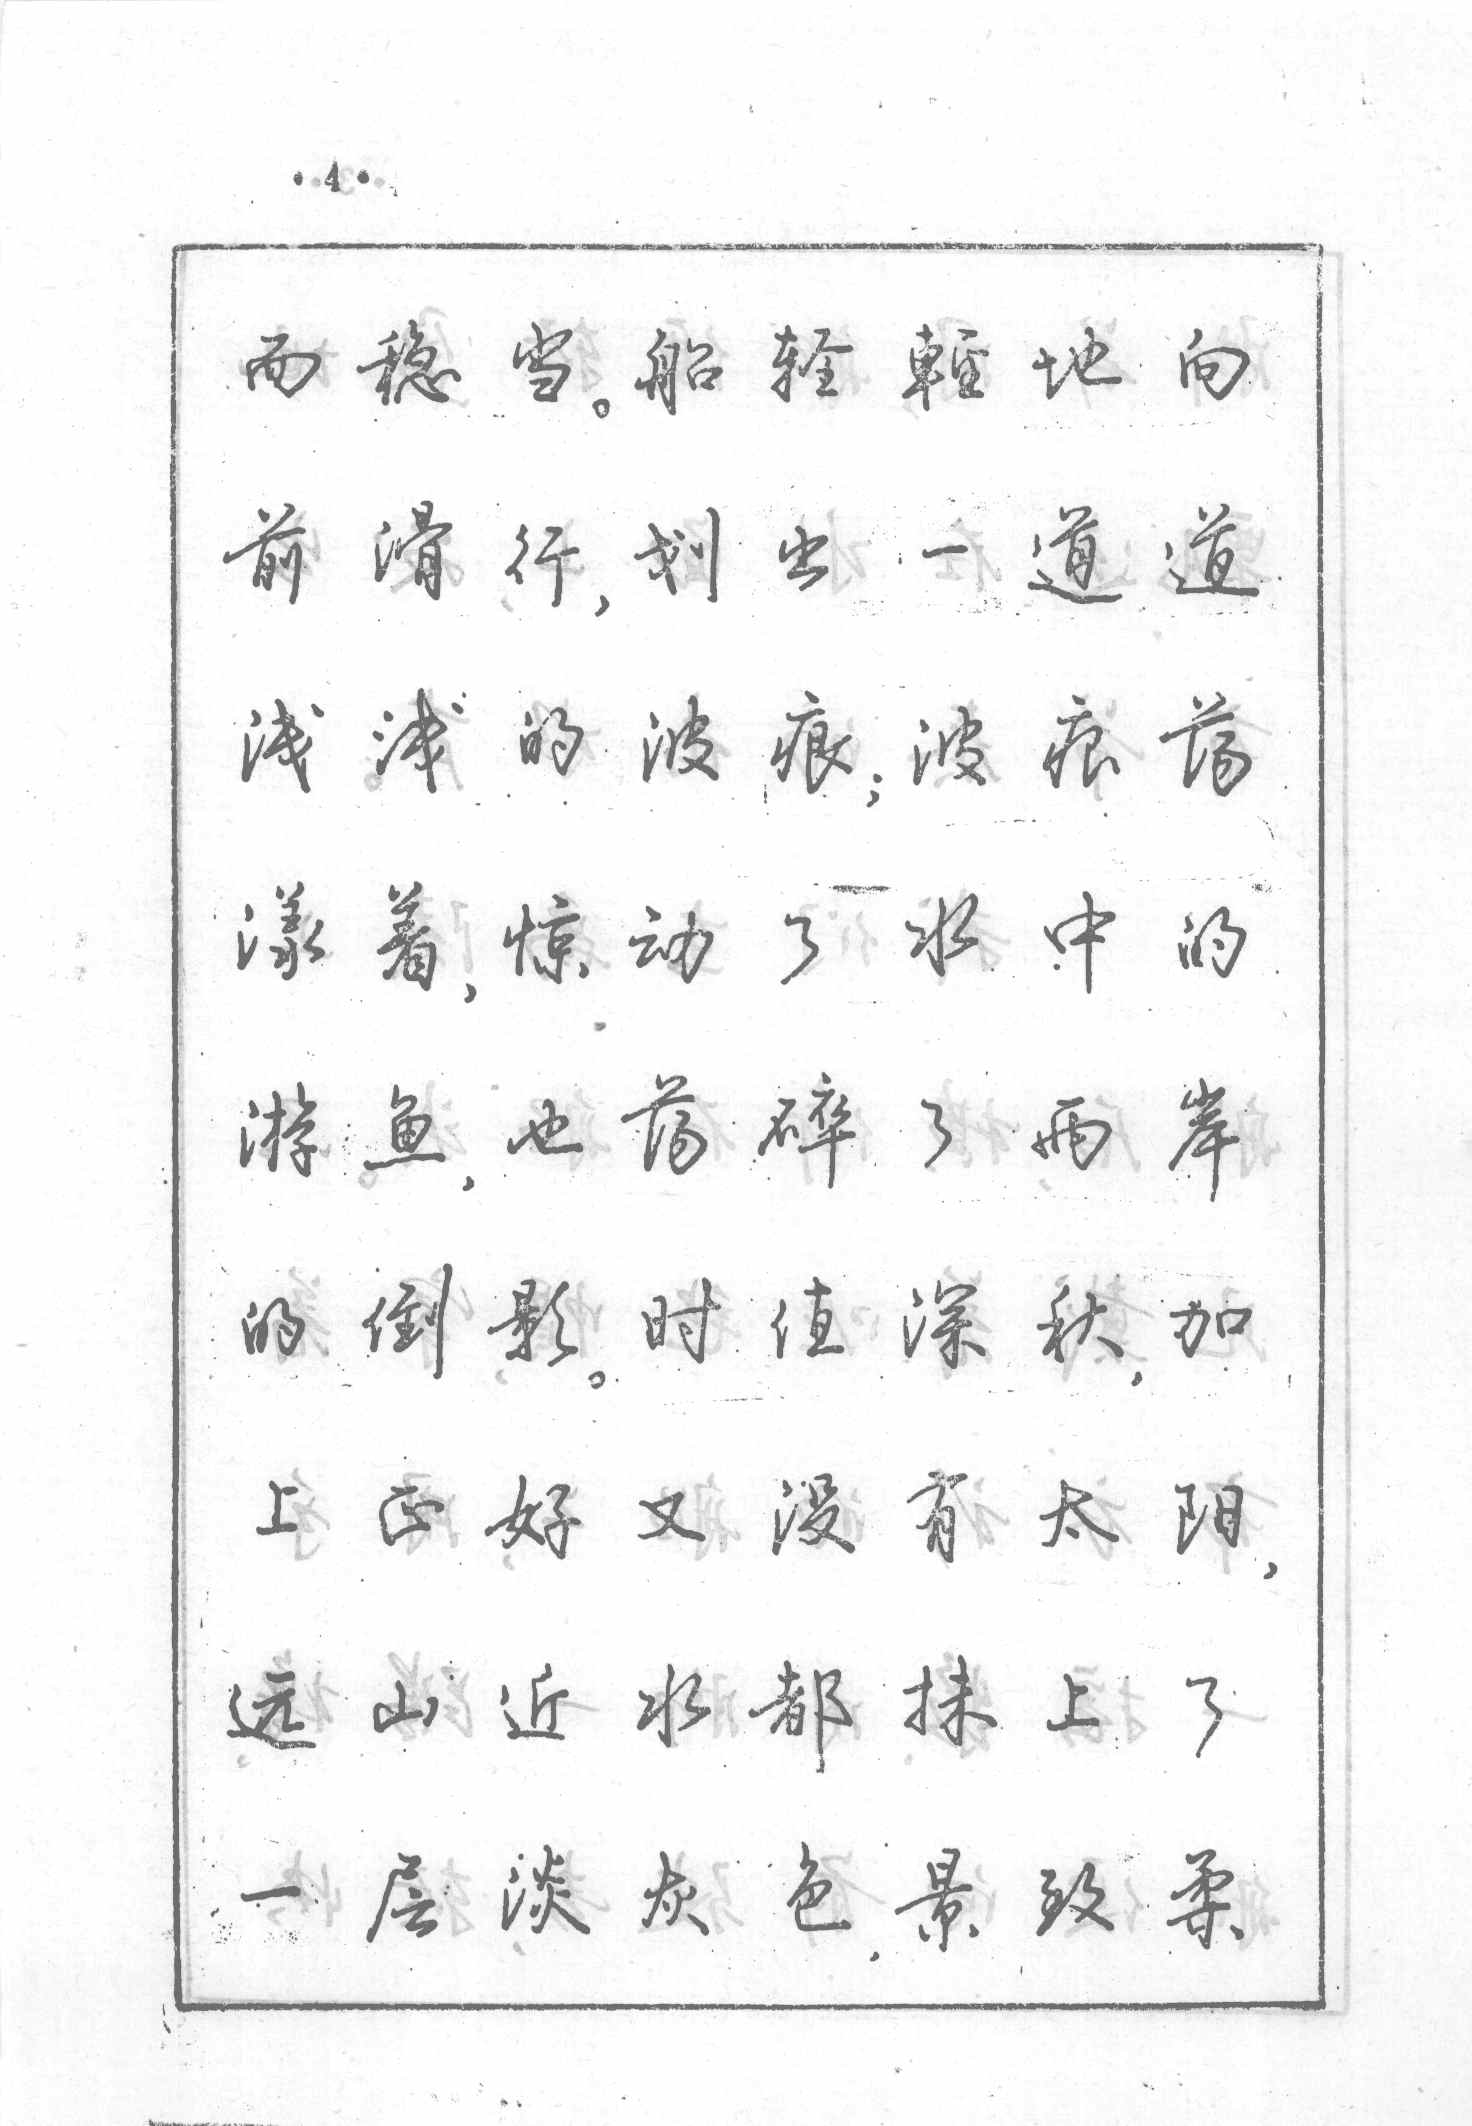 ·4·
而稳当。船轻輕地向
前滑行,划出一道道
浅浅的波痕;波痕荡
漾着,惊动了水中的
游鱼,也荡碎了两岸
的倒影。时值深秋,加
上正好又没有太阳,
远山近水都抹上了
一层淡灰色,景致柔